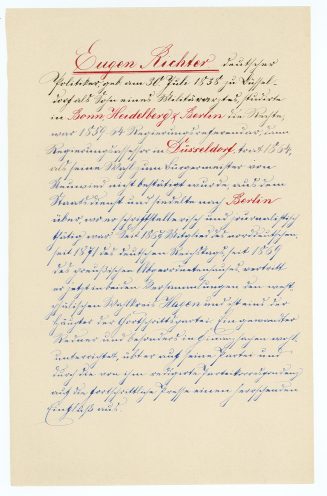 Eugen Richter deutscher
Politiker, geb. am 30. Juli 1838 zu Düssel-
dorf als Sohn eines Militärarztes, studierte
in Bonn, Heidelberg & Berlin die Rechte,
war 1859-64 Regierungsreferendar, dann
Regierungsassessor in Düsseldorf, trat 1864,
als seine Wahl zum Bürgermeister von
Neuwied nicht bestätigt wurde aus dem
Staatsdienst und siedelte nach Berlin
über, wo er schriftstellerisch und journalistisch
thätig war. Seit 1867 Mitglied des norddeutschen,
seit 1871 des deutschen Reichstags, seit 1869
des preußischen Abgeordnetenhauses, vertritt
er jetzt in beiden Versammlungen den west-
phälischen Wahlkreis Hagen und ist einer der
Häupter der Fortschrittspartei. Ein gewandter
Redner und besonders in Finanzfragen wohl
unterrichtet, übt er auf seine Partei und
durch die von ihm redigierte Parteikorrespondenz
auf die fortschrittliche Presse einen herrschenden
Einfluß aus.